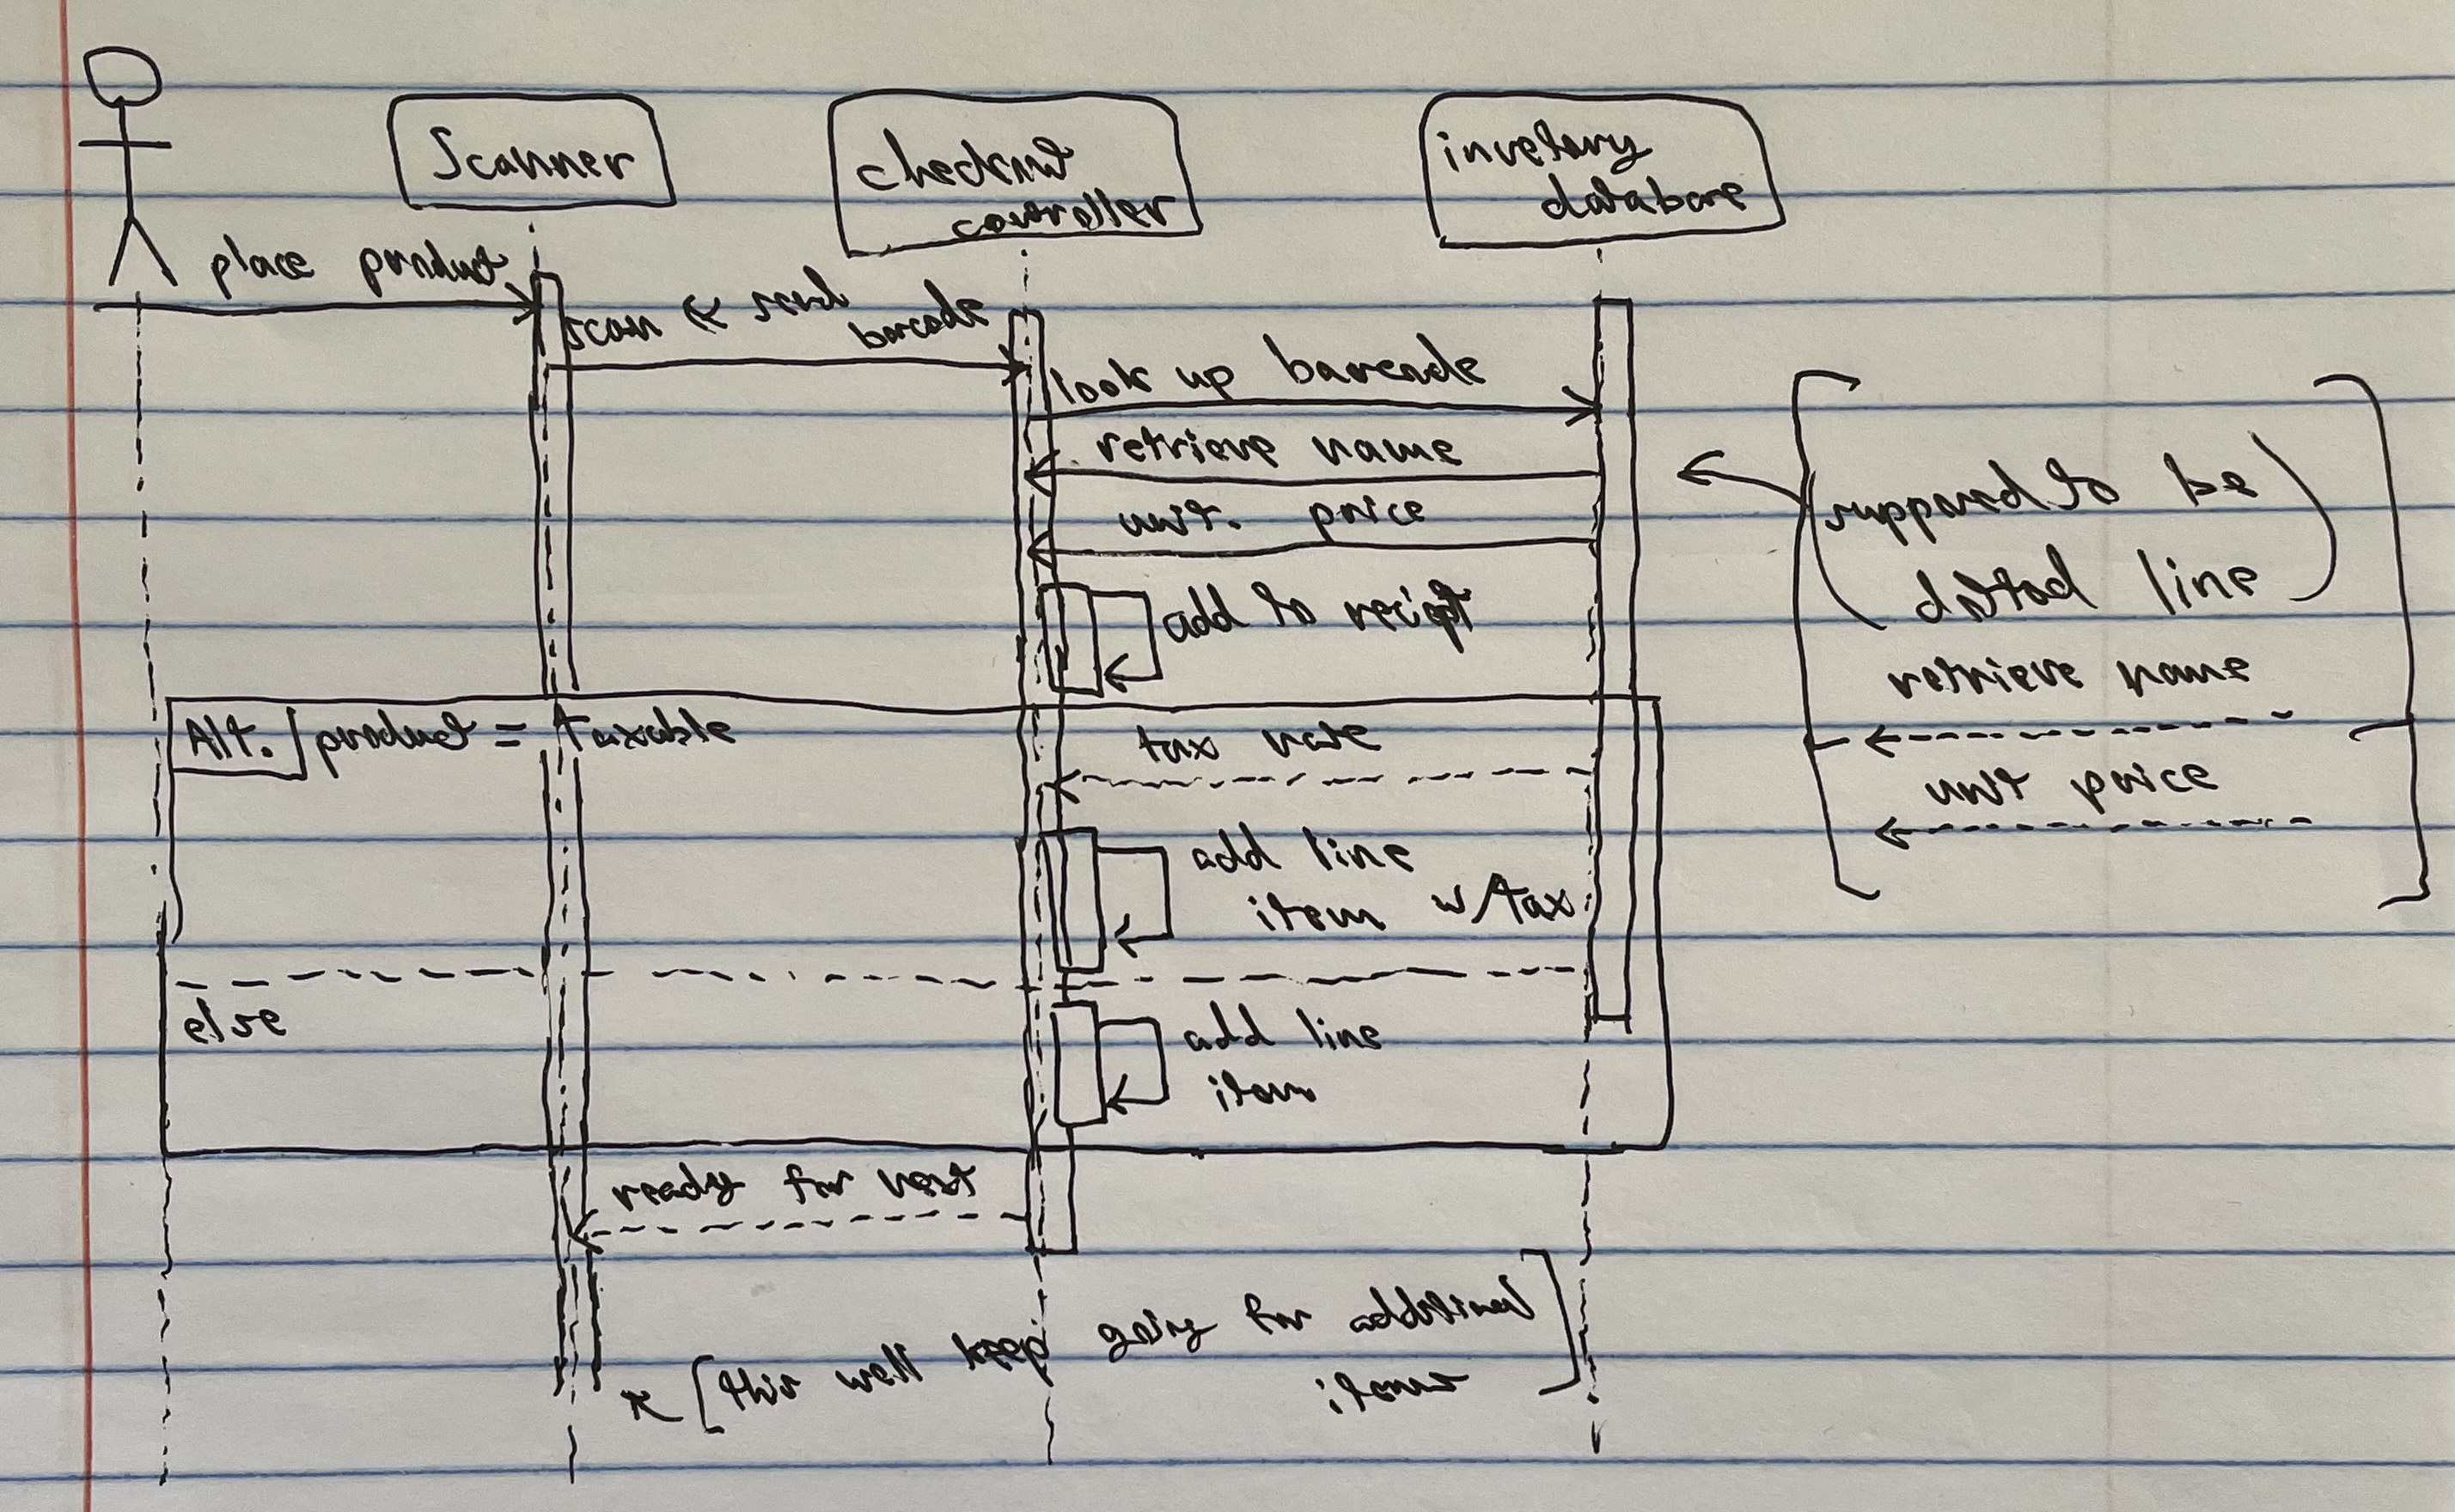 Scanner
checkout
controller
invetory
database
place product
scan & send
barcode
look up barcode
retrieve name
unit. price
add to reciept
(supposed to be
dotted line)
retrieve name
unit price
Alt. product = taxable
tax rate
add line
item w/tax
else
add line
item
ready for next
[this well keep going for additional
items]